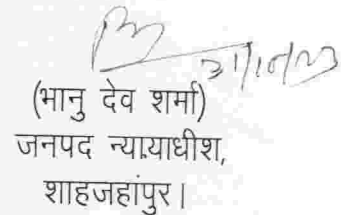 31/10/23
(भानु देव शर्मा)
जनपद न्यायाधीश,
शाहजहांपुर।